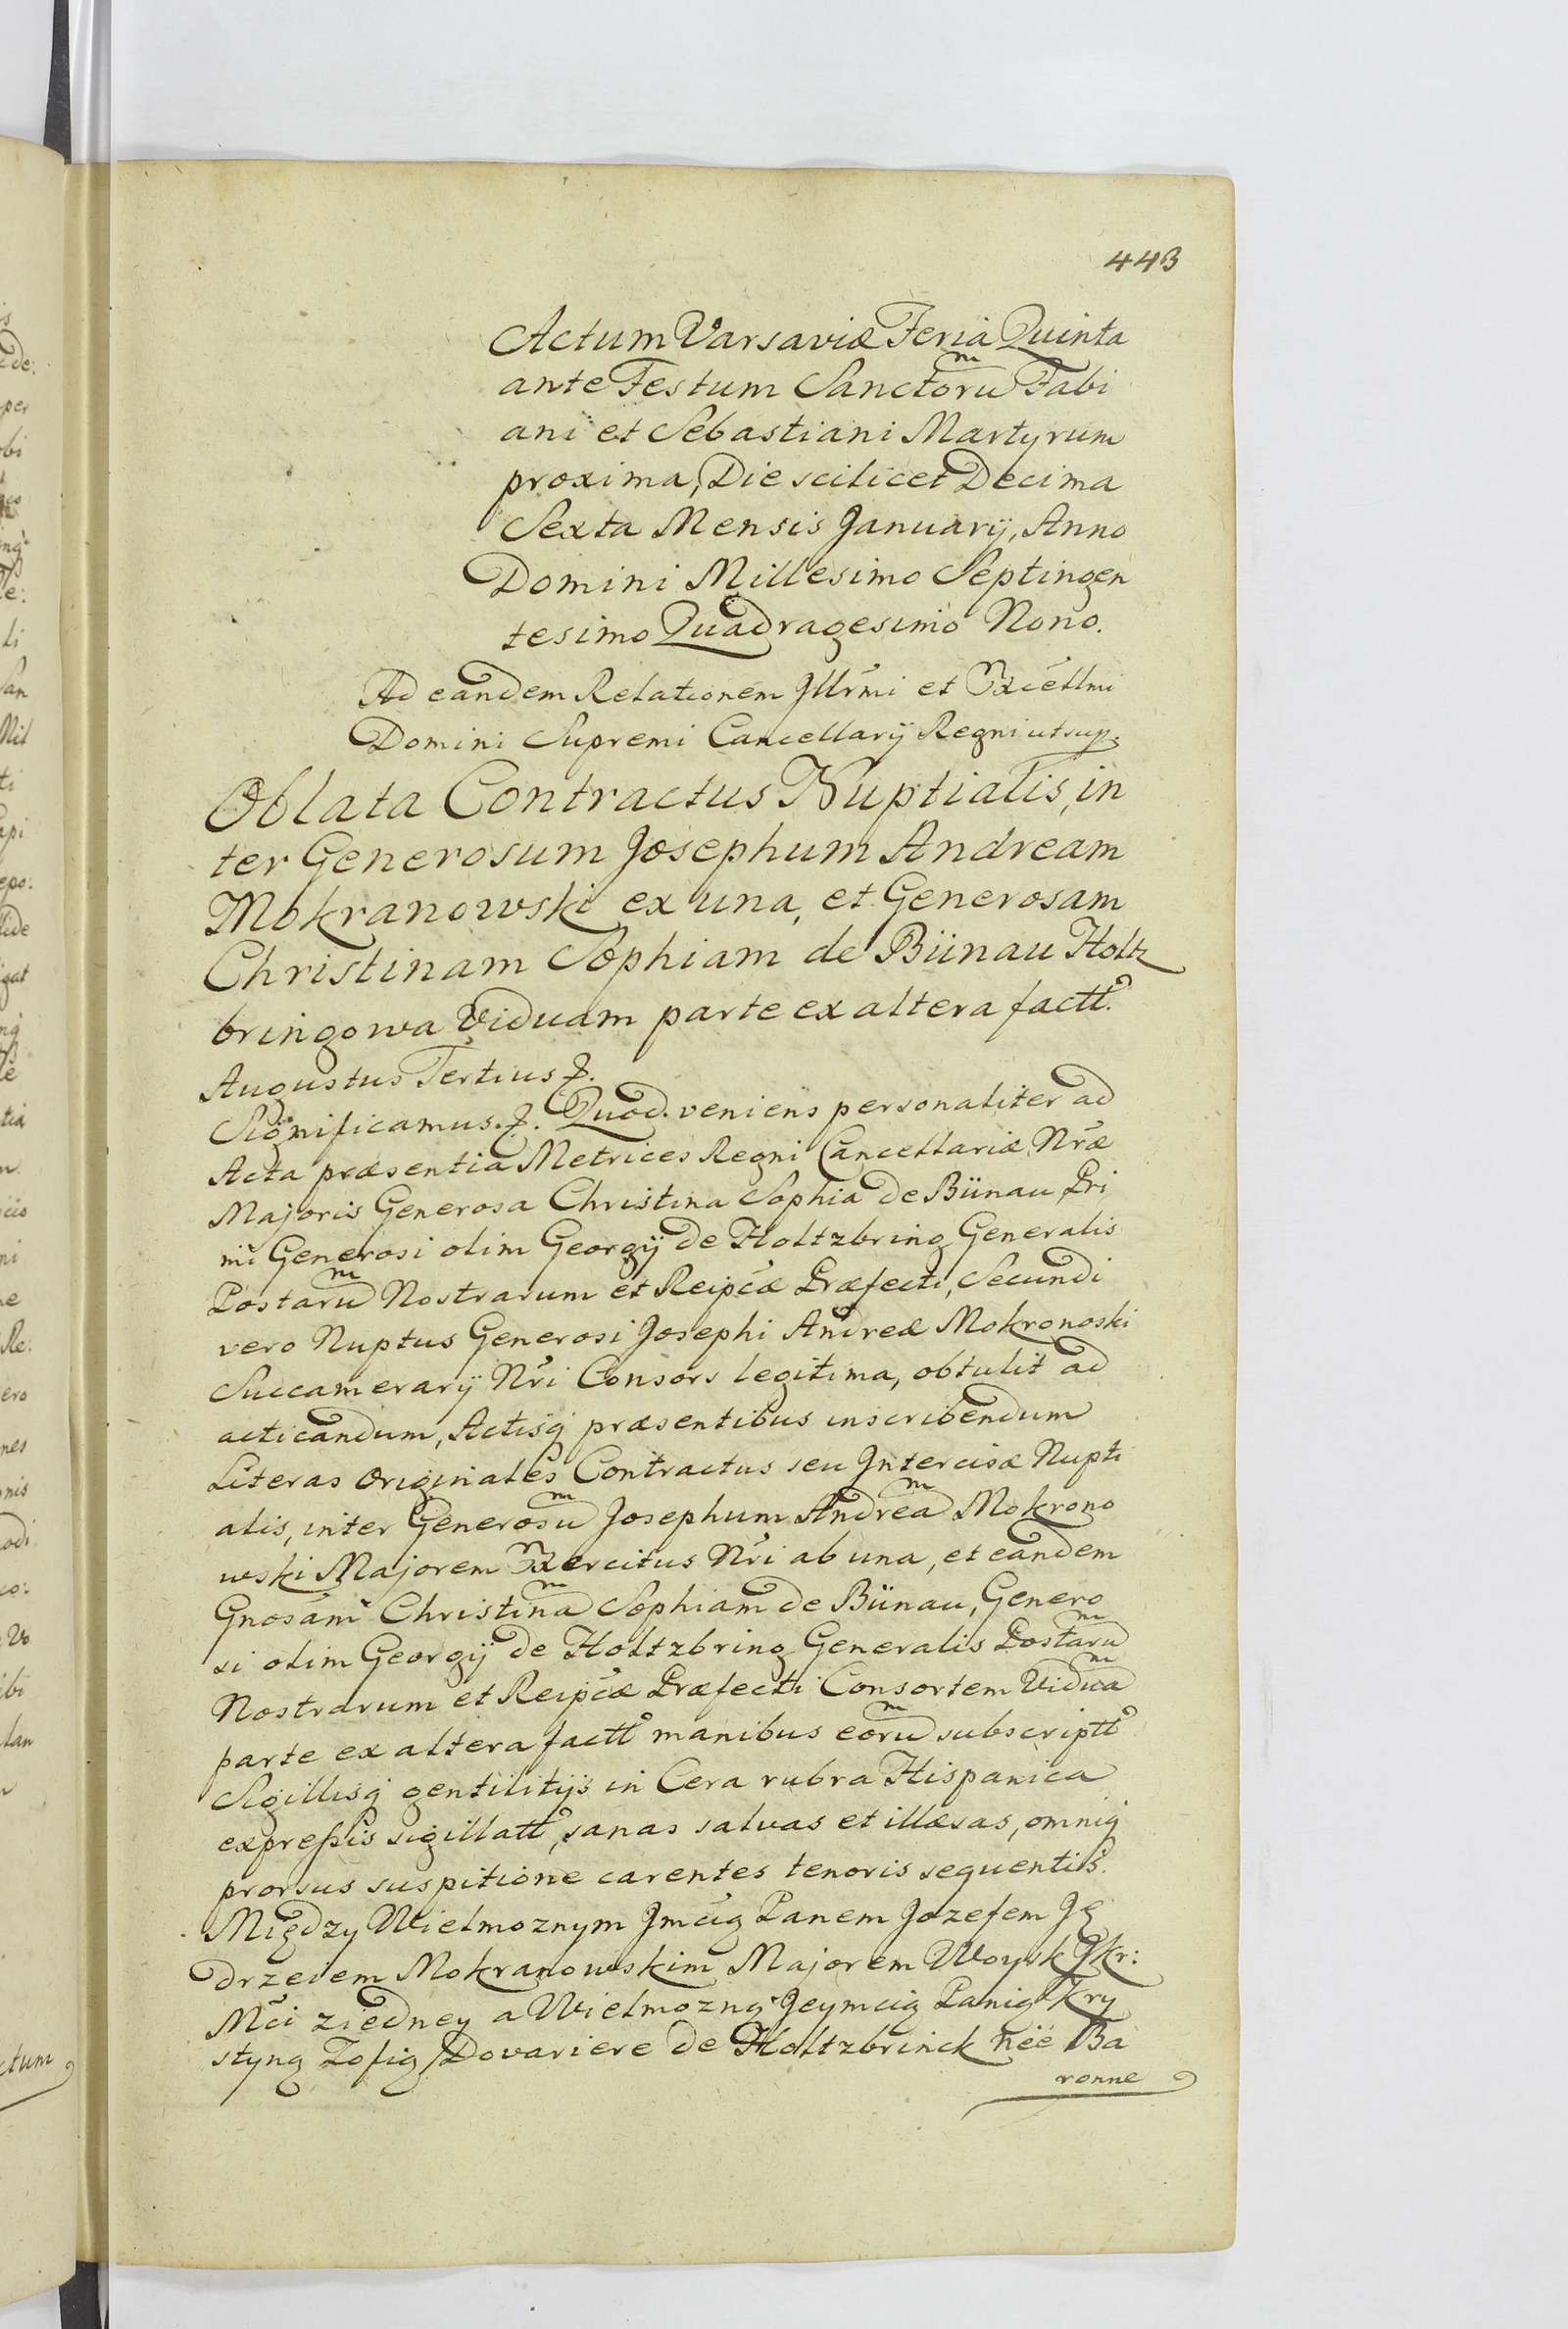 443
Actum Varsaviæ Feria Quinta
ante Festum Sanctoru͠m Fabi
ani et Sebastiani Martyrum
proxima, Die scilicet Decima
Sexta Mensis Januarÿ, Anno
Domini Millesimo Septingen
tesimo Quadragesimo Nono.
Ad eandem Relationem Jllr̃mi et Excellmi
Domini Supremi Cancellarÿ Regni ut sup.
Oblata Contractus Nuptialis, in
ter Generosum Josephum Andream
Mokranowski ex una, et Generosam
Christinam Sophiam de Bünau Holtz
bringowa Viduam parte ex altera factt͠.
Augustus Tertius
Significamus. Quod. veniens personaliter ad
Acta præsentia Metrices Regni Cancellariæ Nr̃æ
Majoris Generosa Christina Sophia de Bünau Pri
mi Generosi olim Georgÿ de Holtzbring Generalis
Postarum Nostrarum et Reipc̃æ Præfecti, Secundi
vero Nuptus Generosi Josephi Andreæ Mokronoski
Succamerarÿ Nr̃i Consors legitima, obtulit ad
acticandum, Actisq præsentibus inscribendum
Literas Originales Contractus seu Jntercisæ Nupti
alis, inter Generosum Josephum Andream Mokrono
wski Majorem Exercitus Nr̃i ab una, et eandem
Gnosam Christinam Sophiam de Bünau, Genero
si olim Georgÿ de Holtzbring Generalis Postarum
Nostrarum et Reipc̃æ Præfecti Consortem Viduam
parte ex altera factt͠ manibus eorum subscriptt͠
Sigillisq gentilitÿs in Cera rubra Hispanica
expressis sigillatt͠, sanas salvas et illæsas, omniq
prorsus suspitione carentes tenoris sequentis.
Między Wielmoznym Jmcią Panem Jozefem Ję
drzeiem Mokranowskim Majorem Woysk Jkr:
Mc̃i ziedney a Wielmozną Jeymcią Panią Kry
styną Zofią Dovariere de Holtzbrinck néë Ba
ronne